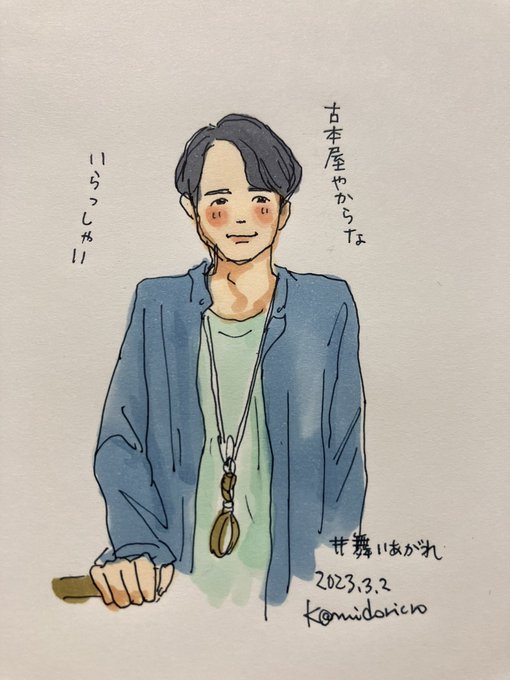 古本屋やからな
いらっしゃい
#舞いあがれ
2023.3.2
K@midoricro